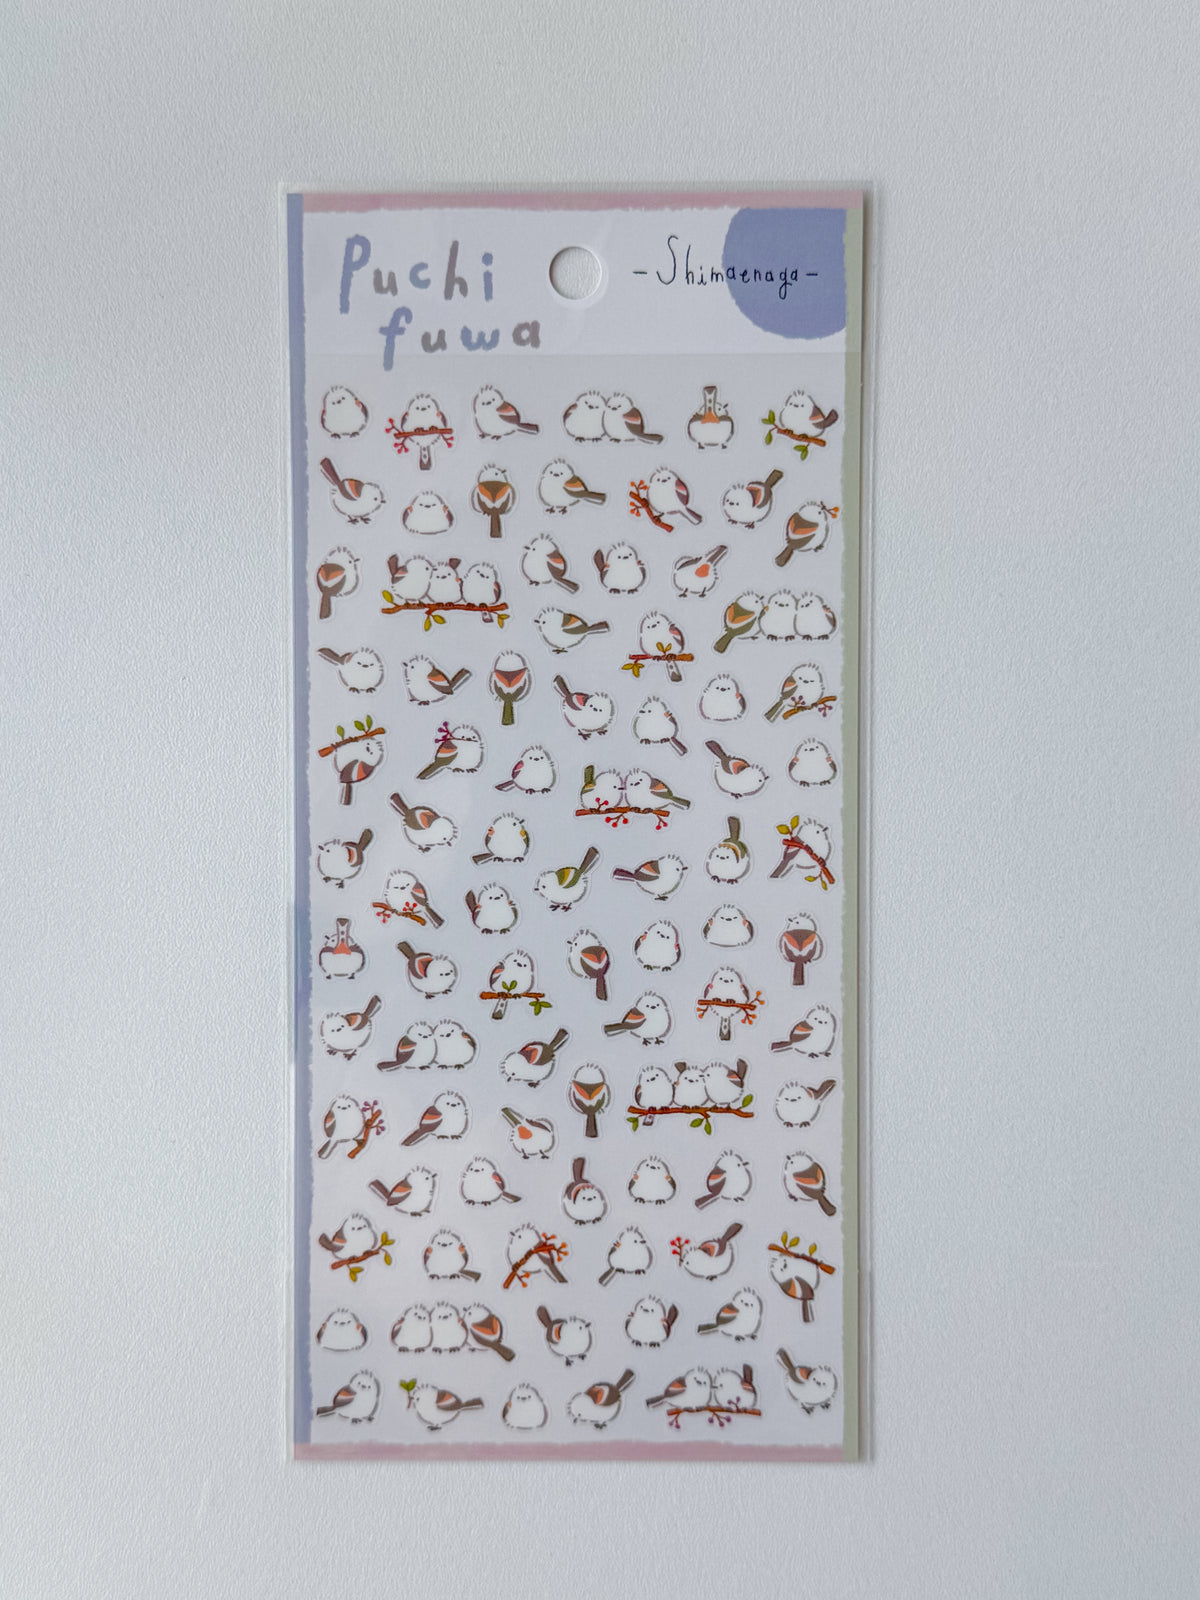 Puchi
fuwa
- Shimaenaga -